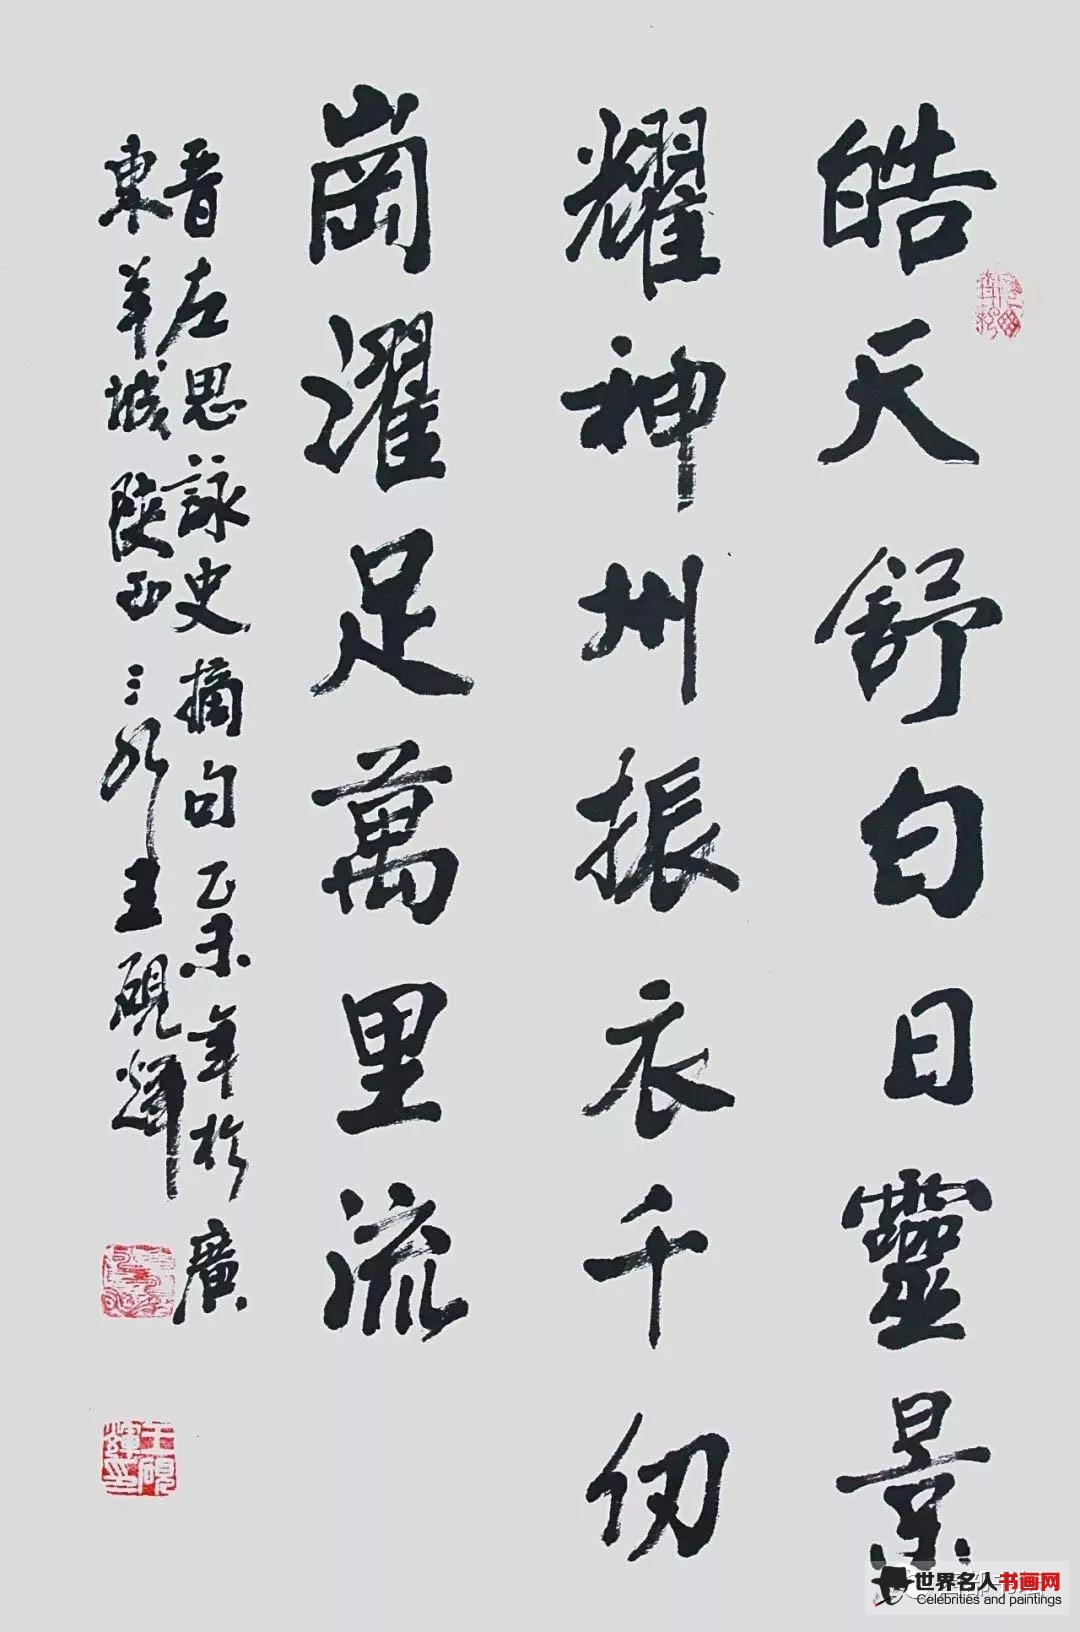 皓天舒白日靈景
耀神州振衣千仞
崗濯足萬里流
晋左思詠史摘句乙未年於廣
東羊城陝西三水王硯輝
王硯
輝印
世界名人书画网
Celebrities and paintings